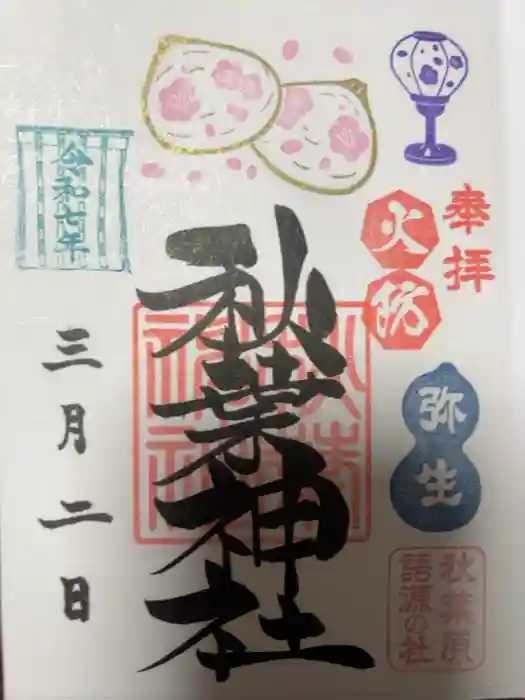 奉拝
火防
弥生
秋葉原
語源の社
秋葉神社
秋葉
神社
令和七年
三月二日